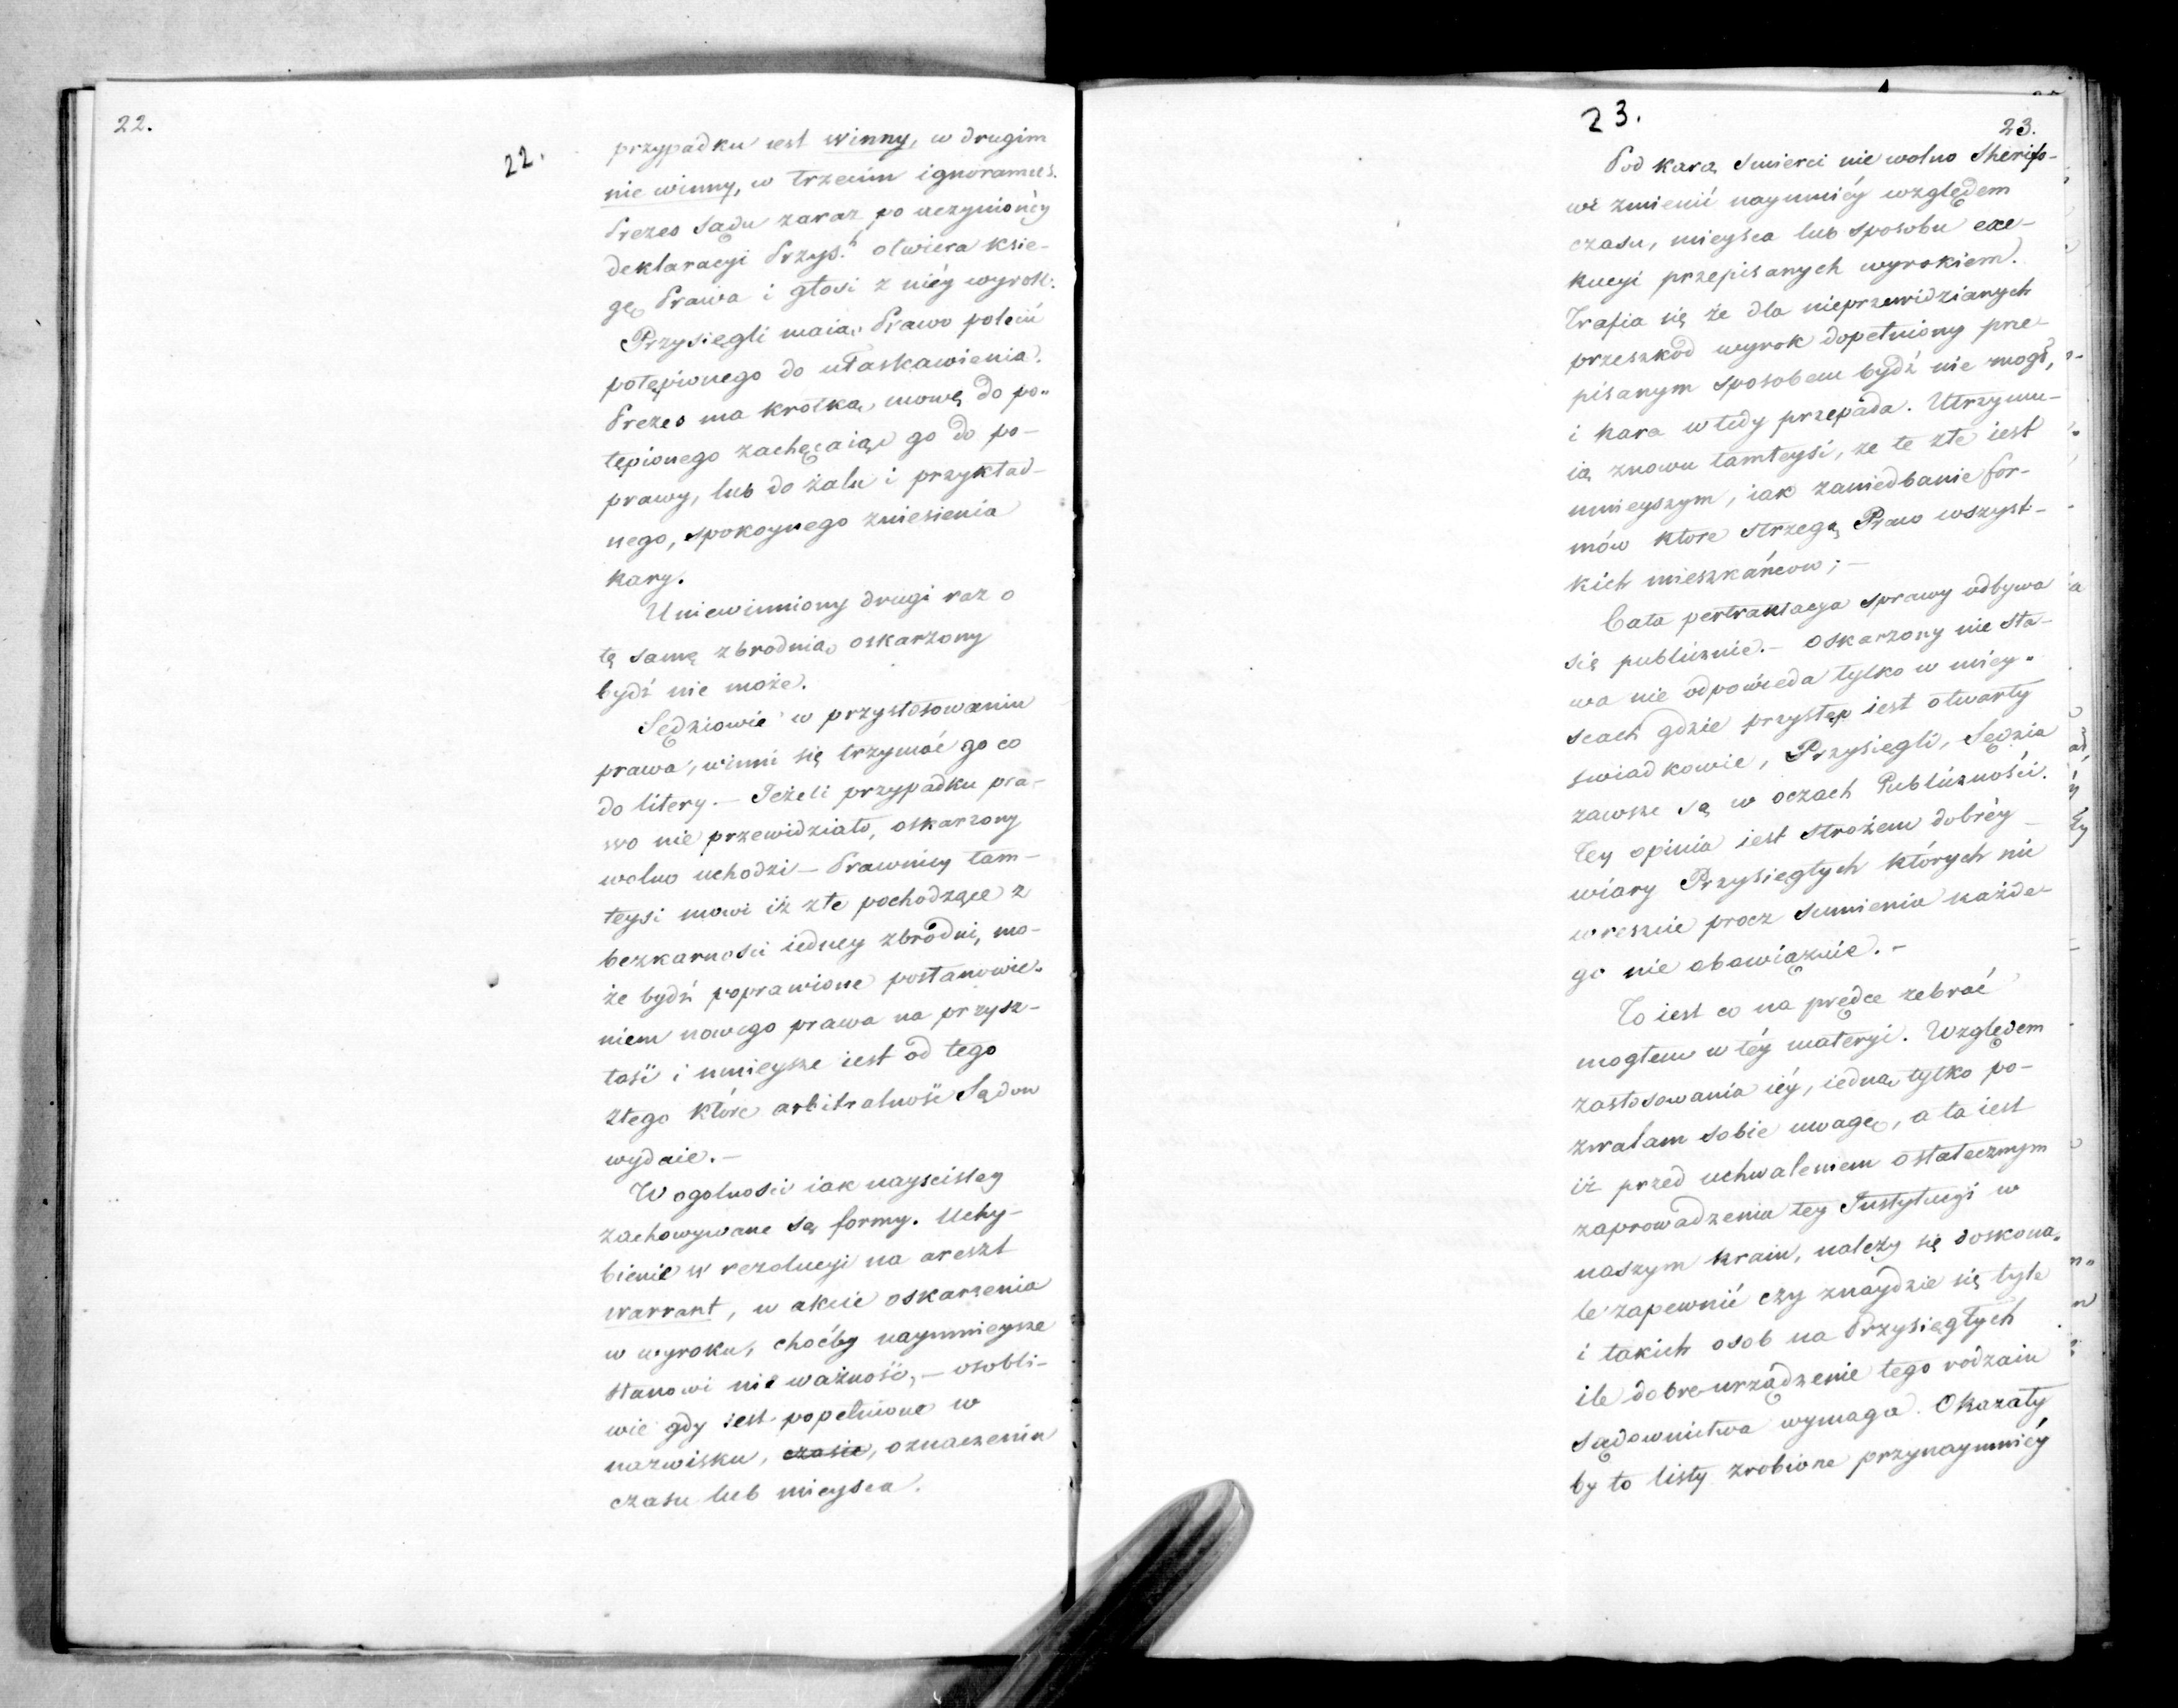 22.
22.
przypadku iest winny, w drugim
nie winny, w trzecim ignoramus.
Prezes Sądu zaraz po uczynionéy
deklaracyi Przys.h otwiera księ-
gę Prawa i głosi z niéy wyrok.
Przysięgli maią Prawo polecić
potępionego do ułaskawienia.
Prezes ma krotką mowę do po-
tępionego zachęcaiąc go do po-
prawy, lub do żalu i przykład-
nego, spokoynego zniesienia
kary.
Uniewinniony drugi raz o
tę samę zbrodnią oskarzony
bydź nie może.
Sędziowie w przystosowaniu
prawa, winni się trzymać go co
do litery. — Jeżeli przypadku pra-
wo nie przewidziało, oskarzony
wolno uchodzi — Prawnicy tam-
teysi mowi iż złe pochodzące z
bezkarności iedney zbrodni, mo-
że bydź poprawione postanowie-
niem nowego prawa na przysz-
łość i mnieysze iest od tego
złego które arbitralność Sądow
wydaie. —
W ogolności iak nayscisley
zachowywane są formy. Uchy-
bienie w rezolucyi na areszt
warrant, w akcie oskarzenia
w wyroku, choćby naymnieysze
stanowi nie ważność, — osobli-
wie gdy iest popełnione w
nazwisku, czasie, oznaczeniu
czasu lub mieysca.
23.
23.
Pod karą smierci nie wolno Sherifo-
wi zmienić naymniéy względem
czasu, mieysca lub sposobu exe-
kucyi przepisanych wyrokiem.
Trafia się że dla nieprzewidzianych
przeszkod wyrok dopełniony prze-
pisanym sposobem bydź nie mogł,
i kara wtedy przepada. Utrzymu-
ią znowu tamteysi, ze te złe iest
mnieyszym, iak zaniedbanie for-
mów ktore strzegą Praw wszyst-
kich mieszkańcow; —
Cała pertraktacya sprawy odbywa
się publicznie. — Oskarzony nie sta-
wa nie odpowieda tylko w miey-
scach gdzie przystęp iest otwarty
swiadkowie, Przysięgli, Sędzia
zawsze są w oczach Publiczności.
Tey opinia iest strożem dobréy
wiary Przysięgłych których nic
wreszcie procz sumienia każde-
go nie obowiązuie. —
To iest co na prędce zebrać
mogłem w téy materyi. Względem
zastosowania iéy, iedną tylko po-
zwalam sobie uwagę, a ta iest
iż przed uchwaleniem ostatecznym
zaprowadzenia tey Instytucyi w
naszym kraiu, należy się doskona-
le zapewnić czy znaydzie się tyle
i takich osob na Przysięgłych
ile dobre urządzenie tego rodzaiu
sądownictwa wymaga. Okazały
by to listy zrobione przynaymniéy